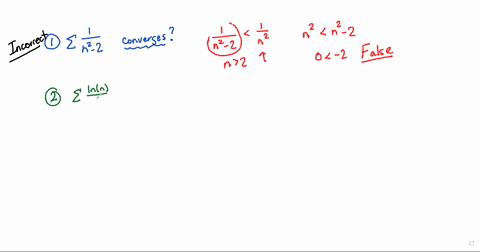 Incorrect ① Σ 1/(n²-2) converges? 1/(n²-2) < 1/n² n² < n²-2
n>2 ↑ 0 < -2 False
② Σ ln(n)